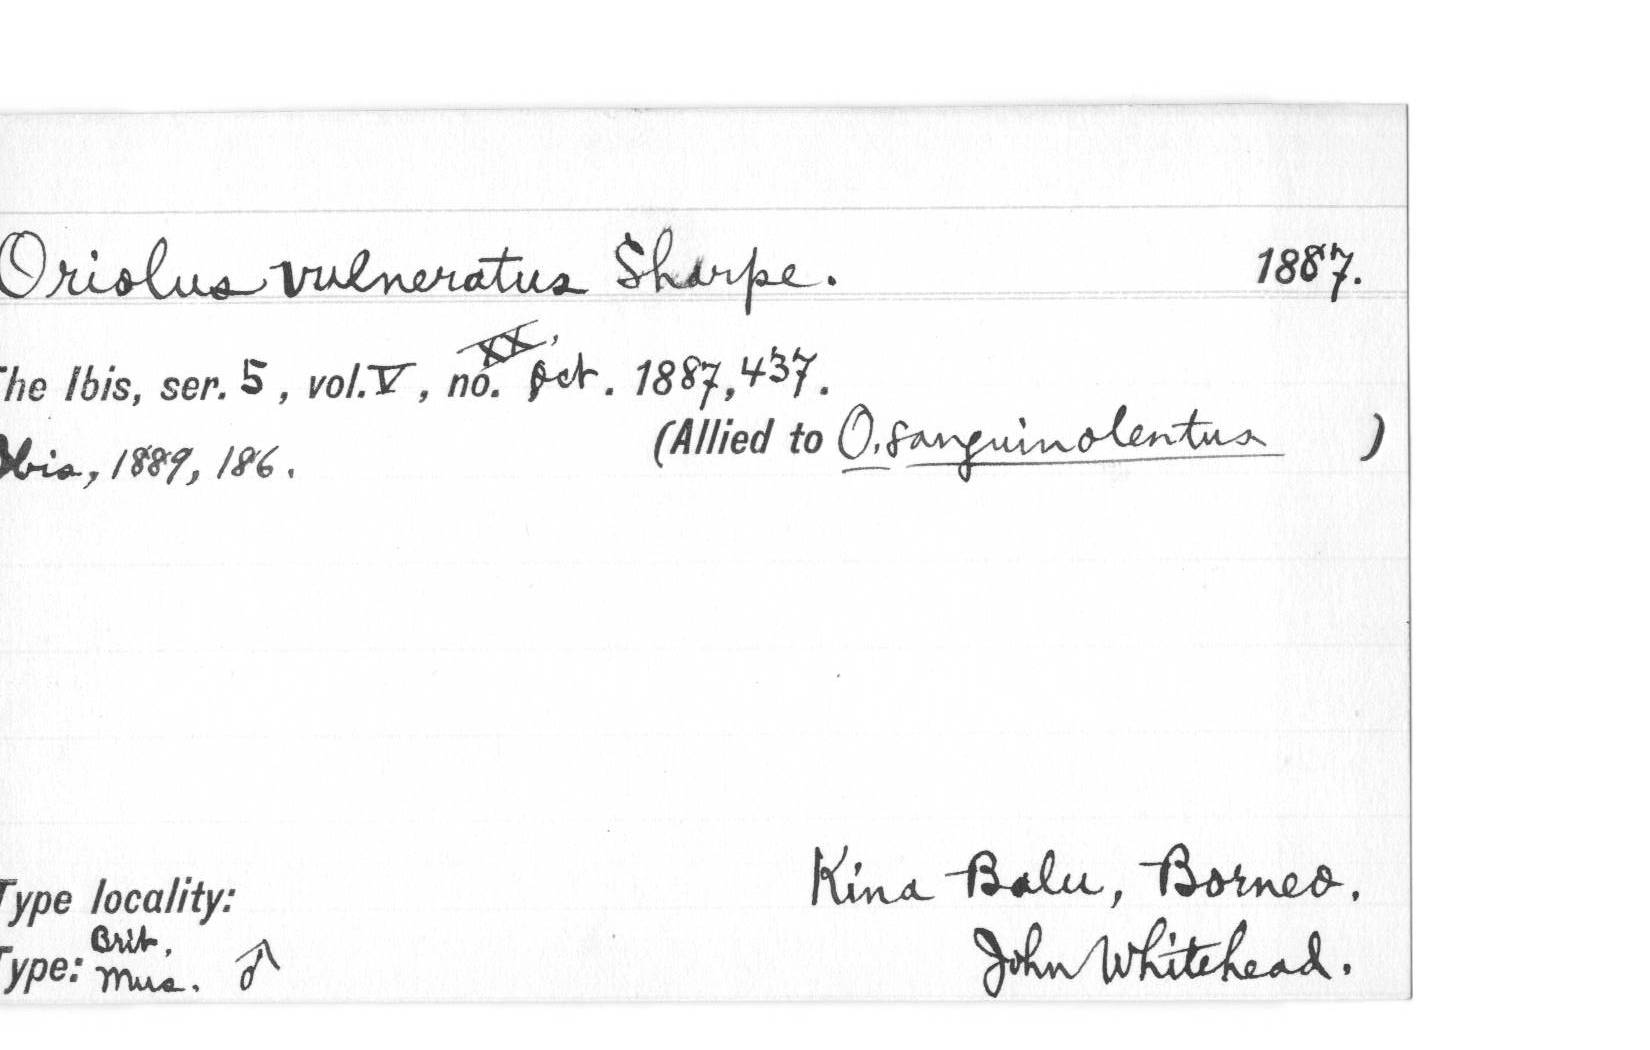 Oriolus vulneratus Sharpe. 1887.
The Ibis, ser. 5, vol. V, no. XX, Oct. 1887, 437.
(Allied to O. sanguinolentus )
Ibis, 1889, 186.
Type locality: Kina Balu, Borneo.
Type: Brit. Mus. ♂ John Whitehead.